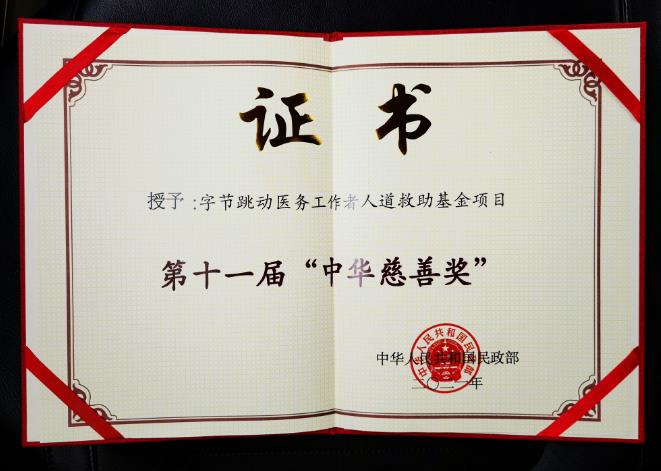 证书
授予：字节跳动医务工作者人道救助基金项目
第十一届“中华慈善奖”
中华人民共和国民政部
二〇二一年
中华人民共和国民政部